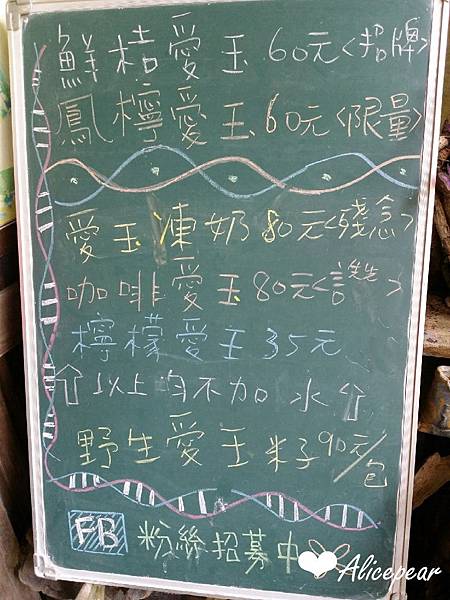 鮮桔愛玉60元<招牌>
鳳檸愛玉60元<限量>
愛玉凍奶80元<殘念>
咖啡愛玉80元<讚>
檸檬愛玉35元
以上均不加水
野生愛玉籽90元/包
FB 粉絲招募中
Alicepear